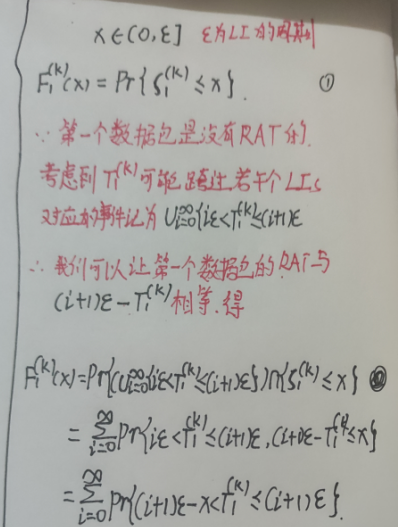 x∈(0,ε] ε为LI的周期
F₁⁽ᵏ⁾(x)=Pr{ζ₁⁽ᵏ⁾≤x}. ①
∵第一个数据包是没有RAT的.
考虑到T₁⁽ᵏ⁾可能跨过若干个LIs
对应的事件记为 ∪ᵢ₌₀^∞{iε<T₁⁽ᵏ⁾≤(i+1)ε
∴我们可以让第一个数据包的RAT与
(i+1)ε-T₁⁽ᵏ⁾相等.得
F₁⁽ᵏ⁾(x)=Pr{(∪ᵢ₌₀^∞{iε<T₁⁽ᵏ⁾≤(i+1)ε})∩{ζ₁⁽ᵏ⁾≤x}
=∑ᵢ₌₀^∞Pr{iε<T₁⁽ᵏ⁾≤(i+1)ε,(i+1)ε-T₁⁽ᵏ⁾≤x}
=∑ᵢ₌₀^∞Pr{(i+1)ε-x<T₁⁽ᵏ⁾≤(i+1)ε}.